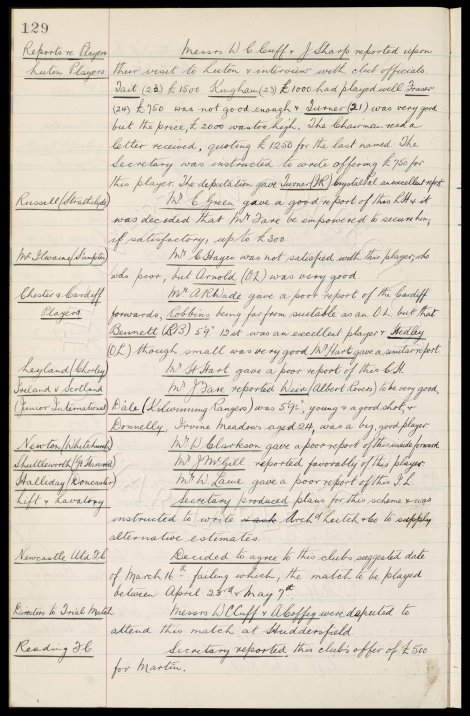 129
Reports re Players Messrs W C Cuff & J Sharp reported upon
Luton Players their visit to Luton & interview with club officials.
Tait (22) £1500 Kingham (23) £1000 had played well Fraser
(24) £750 was not good enough & Turner (21) was very good
but the price, £2000 was too high. The Chairman read a
letter received, quoting £1250 for the last named. The
Secretary was instructed to write offering £750 for
this player. The deputation gave Turner (J.R) Crystal Pal. an excellent report
Russell (Strathclyde) Mr C Green gave a good report of this L.H & it
was decided that Mr Fare be empowered to secure him,
if satisfactory, up to £300.
Mc Ilwaine (S'ampton) Mr C Hayes was not satisfied with this player, who
was poor, but Arnold (OL) was very good
Chester & Cardiff Mr A R Wade gave a poor report of the Cardiff
Players forwards, Robbins being far from suitable as an O.L. but that
Bennett (R.B) 5'9" 12st was an excellent player & Hedley
(O.L) though small was very good Mr Hart gave a similar report
Leyland (Chorley) Mr H Hart gave a poor report of this C.H.
Ireland v Scotland Mr J Fare reported Weir (Albert Rovers) to be very good,
(Junior International) Date (Kilwinning Rangers) was 5'9½", young & a good shot, &
Donnelly, Irvine Meadows aged 24, was a big, good player
Newton (Whitchurch) Mr W Clarkson gave a poor report of this inside forward
Shuttleworth (St Helens) Mr J McGill reported favorably of this player
Halliday (Doncaster) Mr W Lawe gave a poor report of this I.L
Lift & Lavatory Secretary produced plans for this scheme & was
instructed to write Archd Leitch & Co to supply
alternative estimates.
Newcastle Utd F.C. Decided to agree to this clubs, suggested date
of March 16th failing which, the match to be played
between April 23rd & May 7th
Directors to Trial Match Messrs W C Cuff & A Coffey were deputed to
attend this match at Huddersfield
Reading F.C. Secretary reported this club's offer of £500
for Martin.